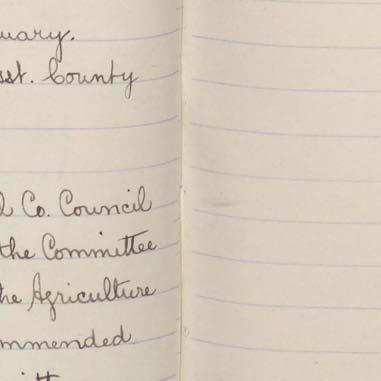 uary.
sst. County
l Co. Council
the Committee
he Agriculture
mmended